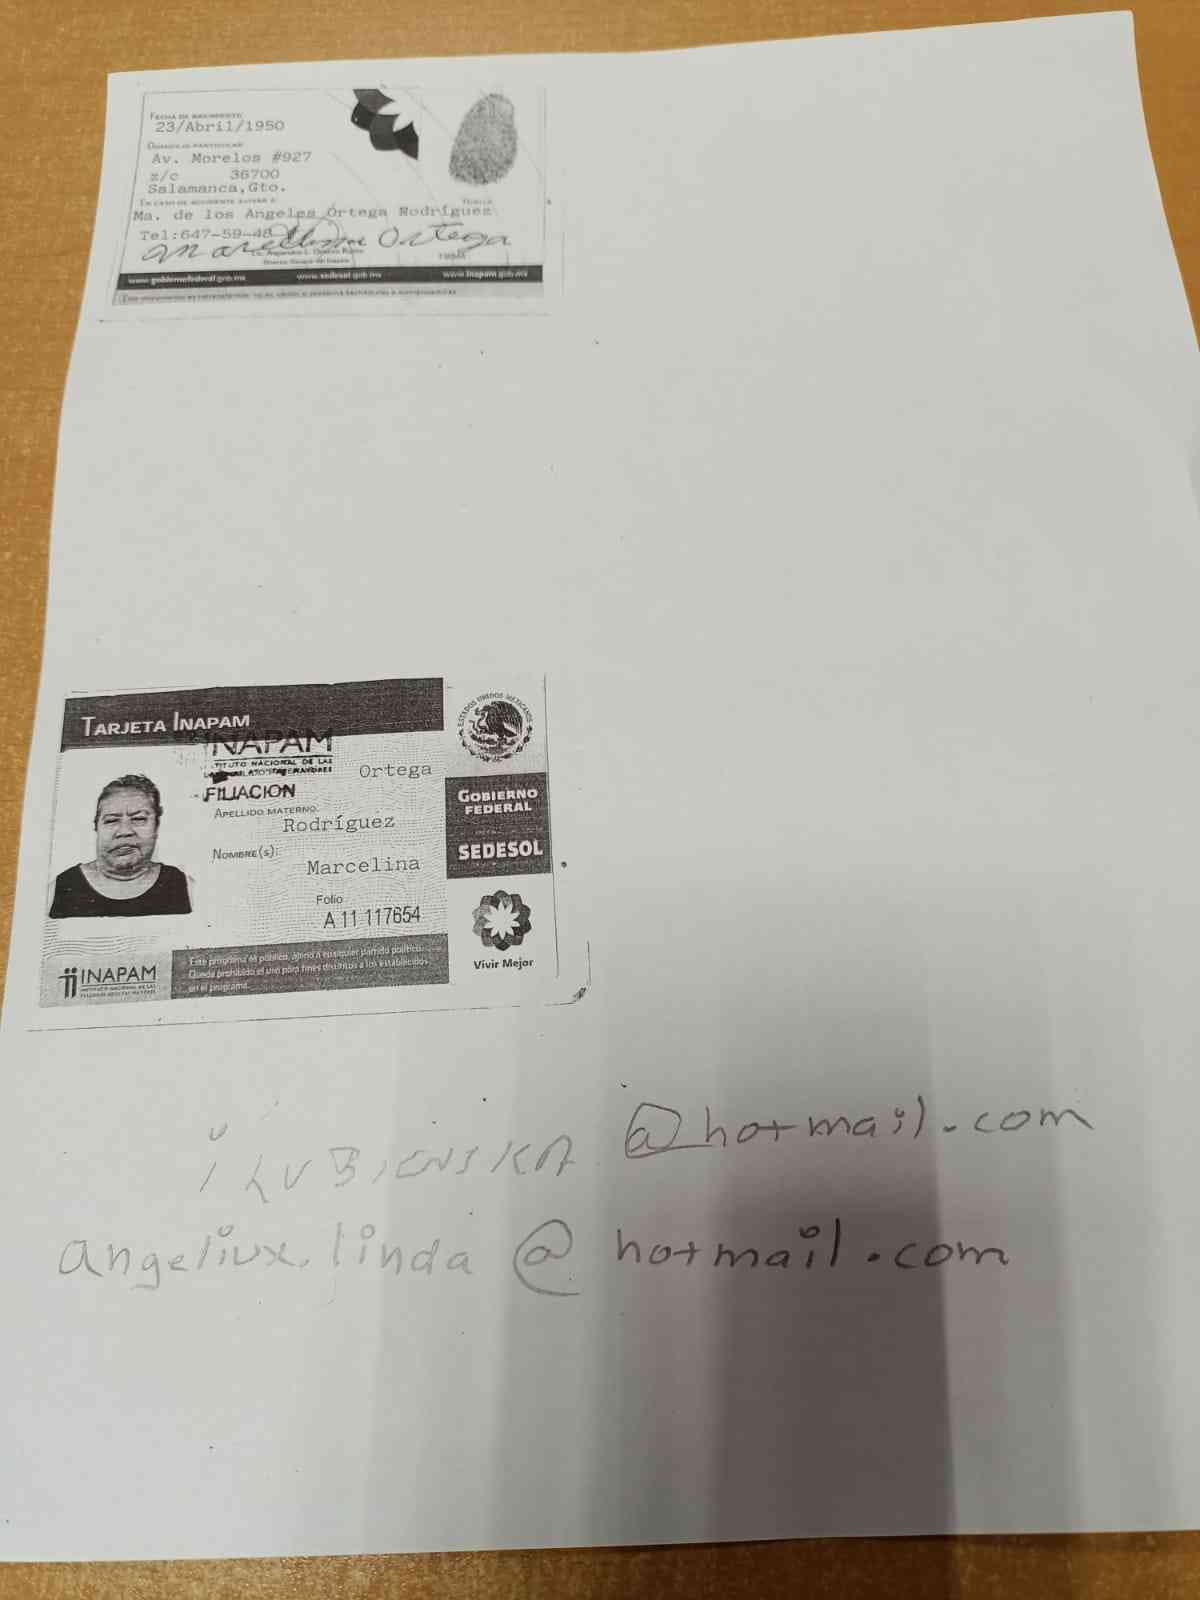 FECHA DE NACIMIENTO
23/Abril/1950
DOMICILIO PARTICULAR
Av. Morelos #927
z/c 36700
Salamanca,Gto.
EN CASO DE ACCIDENTE AVISAR A
Ma. de los Angeles Ortega Rodríguez
Tel:647-59-48
Marcelina Ortega
FIRMA
www.gobiernofederal.gob.mx www.sedesol.gob.mx www.inapam.gob.mx
TARJETA INAPAM
INAPAM
INSTITUTO NACIONAL DE LAS
FILIACION
Ortega
APELLIDO MATERNO:
Rodríguez
NOMBRE(S):
Marcelina
Folio
A 11 117654
ESTADOS UNIDOS MEXICANOS
GOBIERNO
FEDERAL
SEDESOL
Vivir Mejor
INAPAM
INSTITUTO NACIONAL DE LAS
PERSONAS ADULTAS MAYORES
Este programa es público, ajeno a cualquier partido político.
Queda prohibido el uso para fines distintos a los establecidos
en el programa.
@hotmail.com
angeliux.linda@hotmail.com